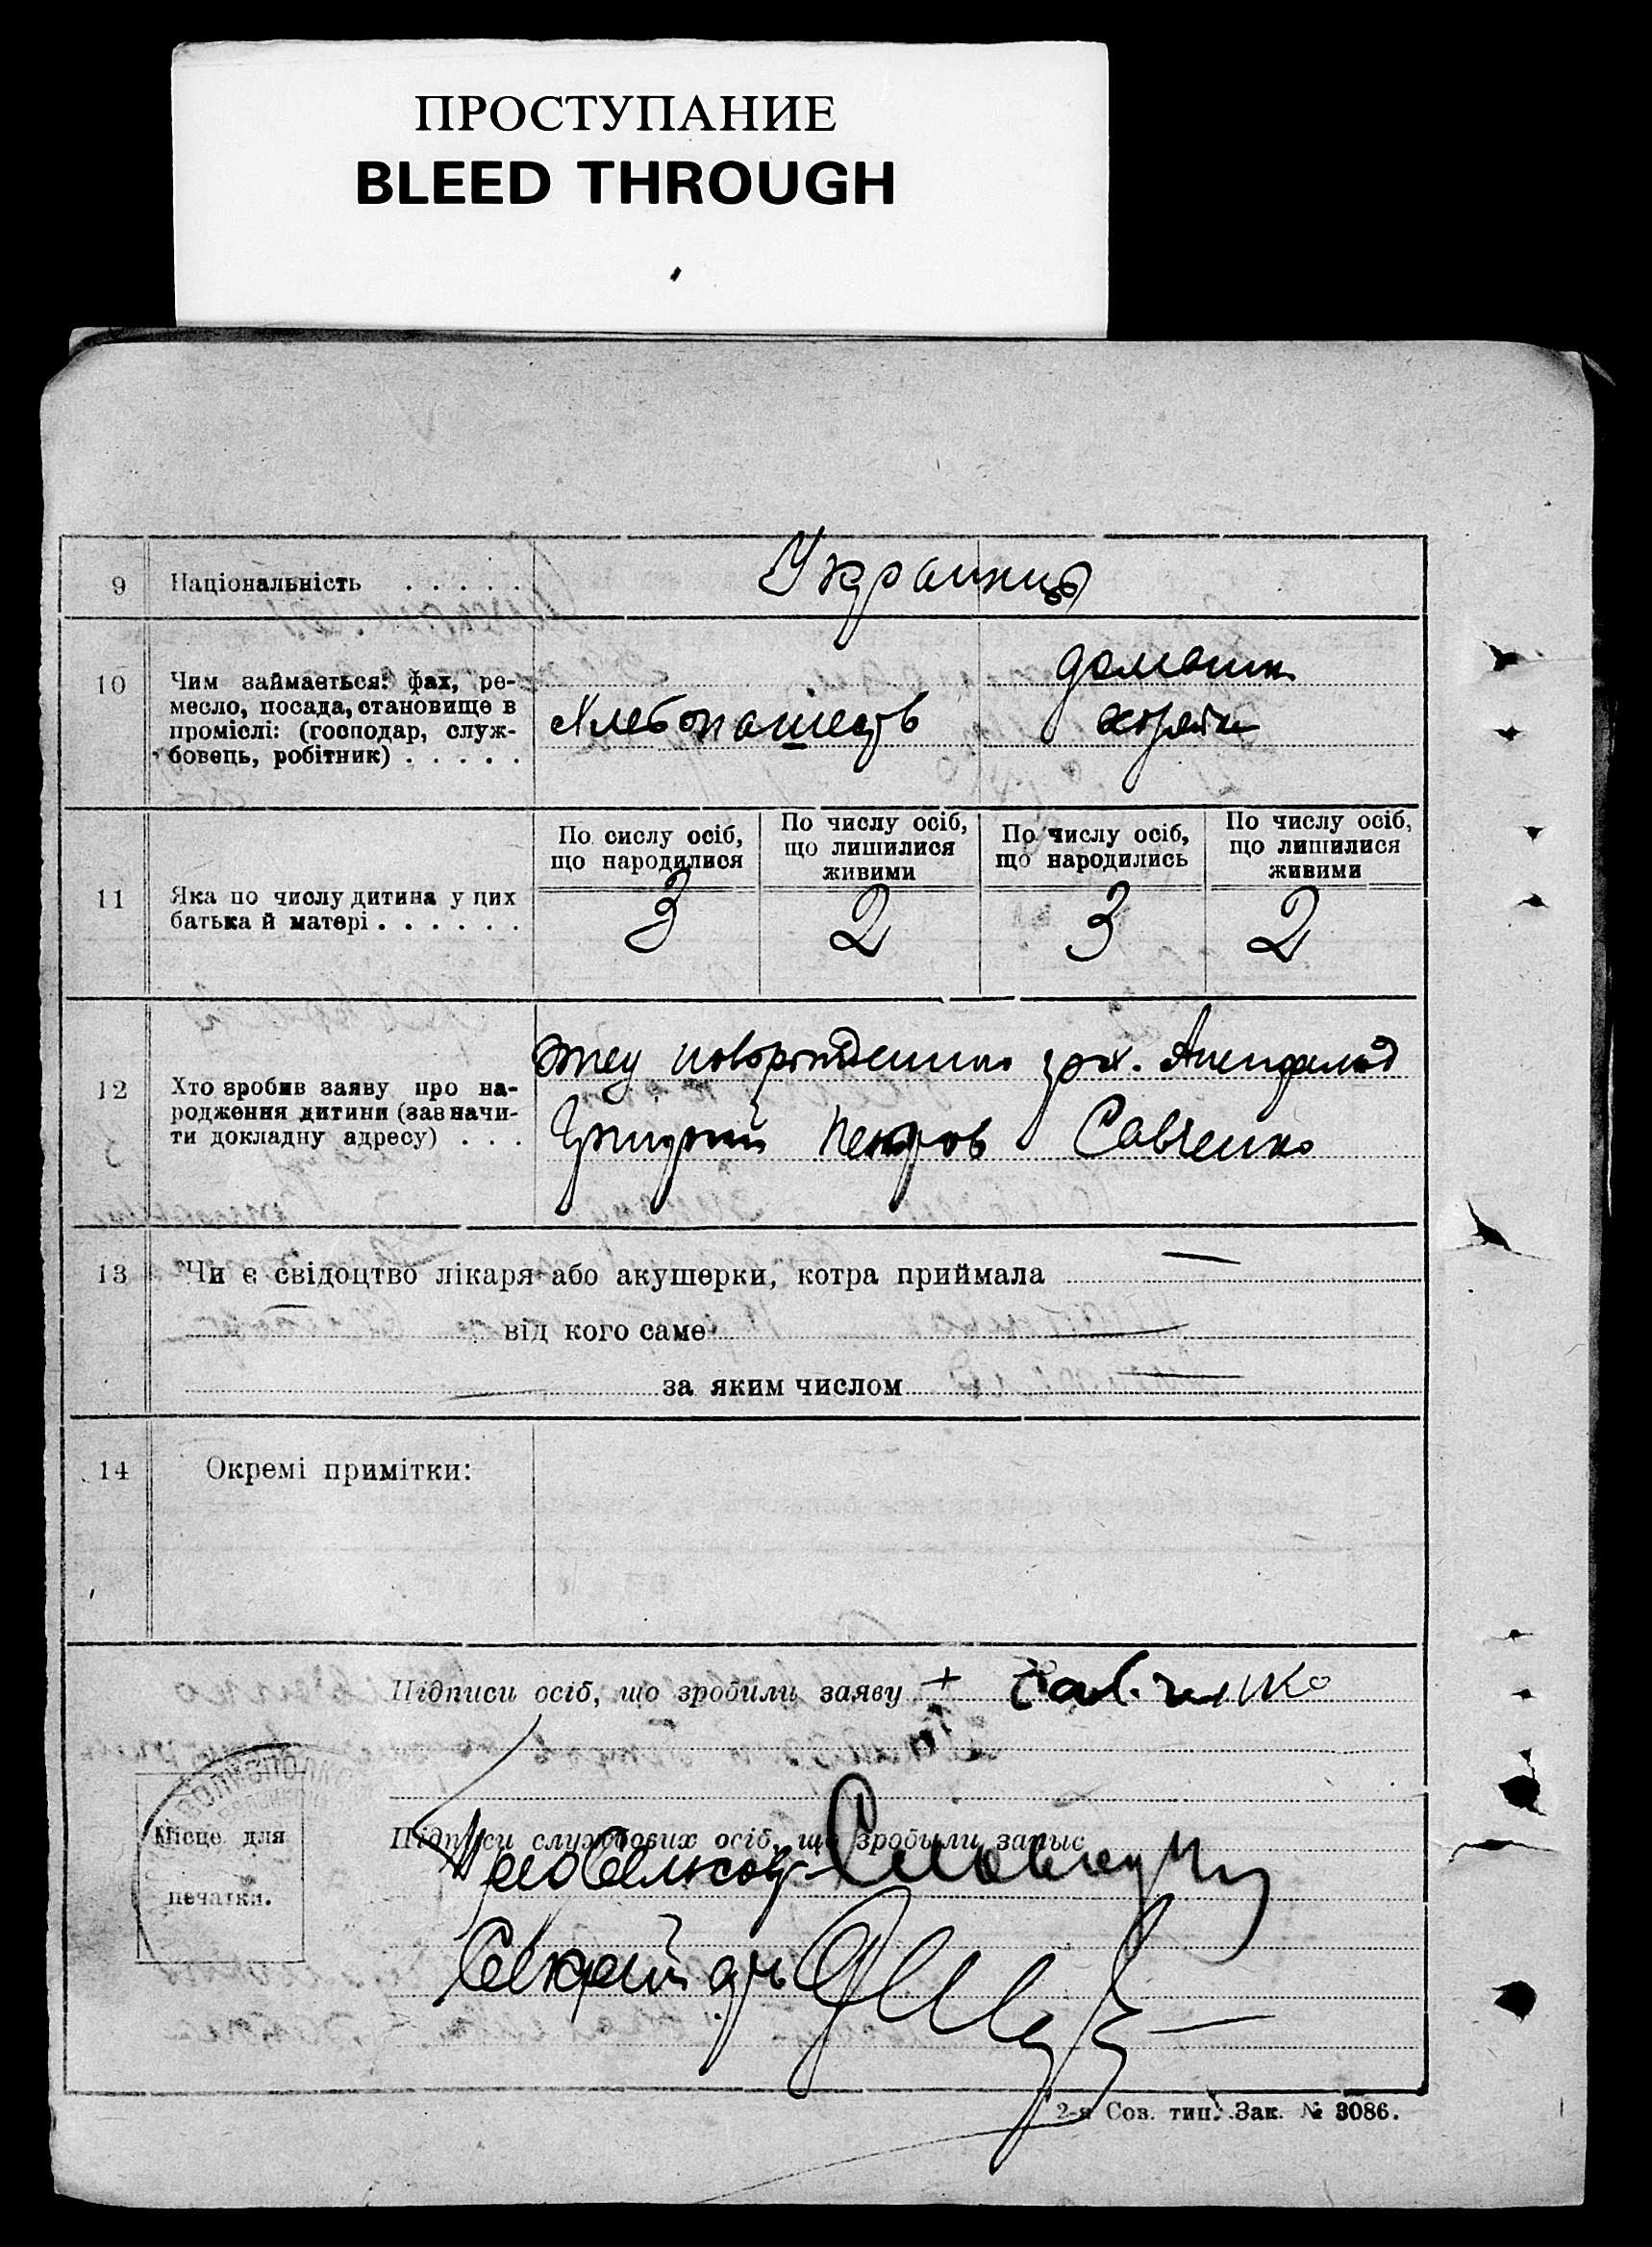 ПРОСТУПАНИЕ
BLEED THROUGH
9 Національність . . . . . Украинцы
10 Чим займається: фах, ре-
месло, посада, становище в
проміслі: (господар, служ-
бовець, робітник) . . . . .
Хлебопашеств
домашн
хозяйк
По сислу осіб,
що народилися
По числу осіб,
що лишилися
живими
По числу осіб,
що народились
По числу осіб,
що лишилися
живими
11 Яка по числу дитина у цих
батька й матері . . . . . .
3 2 3 2
12 Хто зробив заяву про на-
родження дитини (зазначи-
ти докладну адресу) . . .
Отец новорожденного
Григорий Петров Савченко
13 Чи є свідоцтво лікаря або акушерки, котра приймала —
— від кого саме —
— за яким числом —
14 Окремі примітки:
Підписи осіб, що зробили заяву + Савченко
Місце для
печатки.
Підписи службових осіб, що зробыли запыс
Секретарь
2-я Сов. тип. Зак. № 3086.